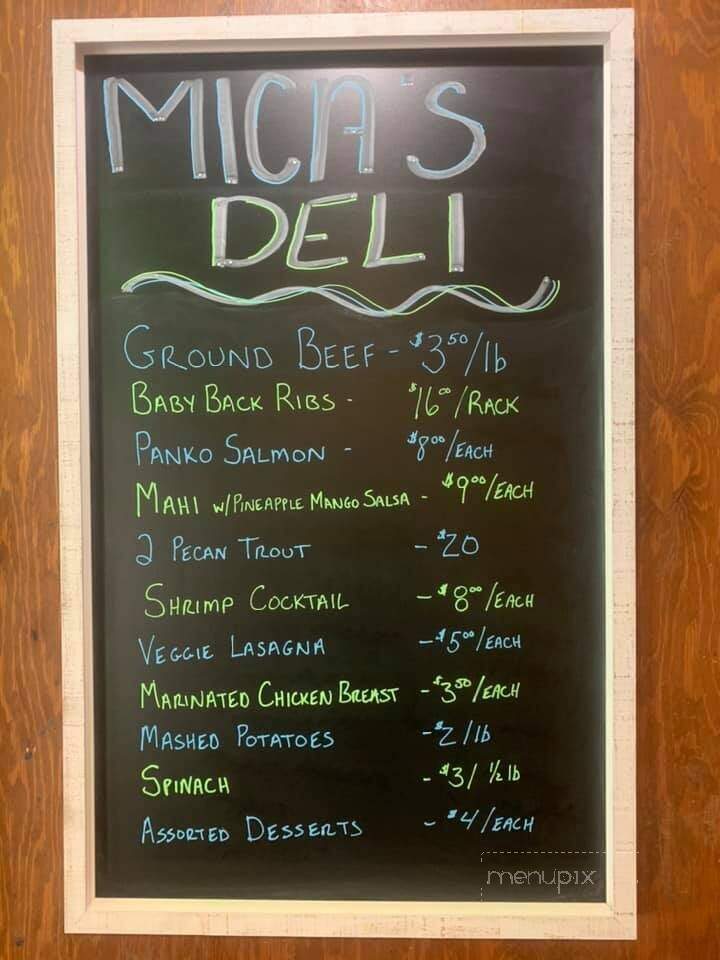 MICA'S
DELI
GROUND BEEF - $3.50/lb
BABY BACK RIBS - $16.00/RACK
PANKO SALMON - $8.00/EACH
MAHI W/PINEAPPLE MANGO SALSA - $9.00/EACH
2 PECAN TROUT - $20
SHRIMP COCKTAIL - $8.00/EACH
VEGGIE LASAGNA - $5.00/EACH
MARINATED CHICKEN BREAST - $3.50/EACH
MASHED POTATOES - $2/lb
SPINACH - $3/ 1/2 lb
ASSORTED DESSERTS - $4/EACH
menupix